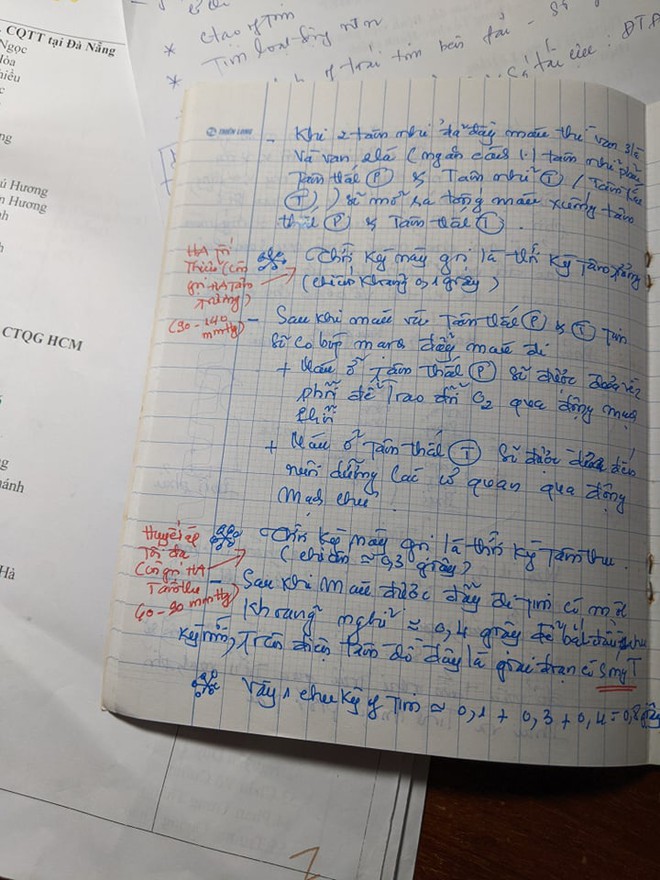 CQTT tại Đà Nẵng
Ngọc
Hòa
hiếu
c
ng
ú Hương
n Hương
nh
h
CTQG HCM
g
hánh
Hà
* 
* Tim
THIÊN LONG
- Khi 2 tâm nhĩ đã đầy máu thì van 3 lá
và van 2 lá (ngăn cách tâm nhĩ phải
Tâm thất (P) & Tâm nhĩ (T) /
(T)) sẽ mở ra tống máu xuống tâm
thất (P) & Tâm thất (T).
HA tối
thiểu (còn
gọi HA Tâm
trương)
(90 - 140
mmHg)
Thời kỳ này gọi là thời kỳ Tâm
(chiếm khoảng 0,1 giây)
- Sau khi máu về Tâm thất (P) & (T) tim
sẽ co bóp mạnh đẩy máu đi
+ Máu ở tâm thất (P) sẽ được đưa về
phổi để trao đổi O2 qua động mạch
phổi
+ Máu ở Tâm thất (T) sẽ được đưa đến
nuôi dưỡng các cơ quan qua động
mạch chủ.
Huyết áp
Tối đa
Còn gọi HA
Tâm thu
60 - 90 mmHg)
Thời kỳ này gọi là thời kỳ Tâm thu.
(chiếm ≈ 0,3 giây)
- Sau khi máu được đẩy đi tim có một
khoảng nghỉ ≈ 0,4 giây để bắt đầu chu
kỳ mới, Trên điện tâm đồ đây là giai đoạn
Vậy 1 chu kỳ of Tim ≈ 0,1 + 0,3 + 0,4 = 0,8 giây